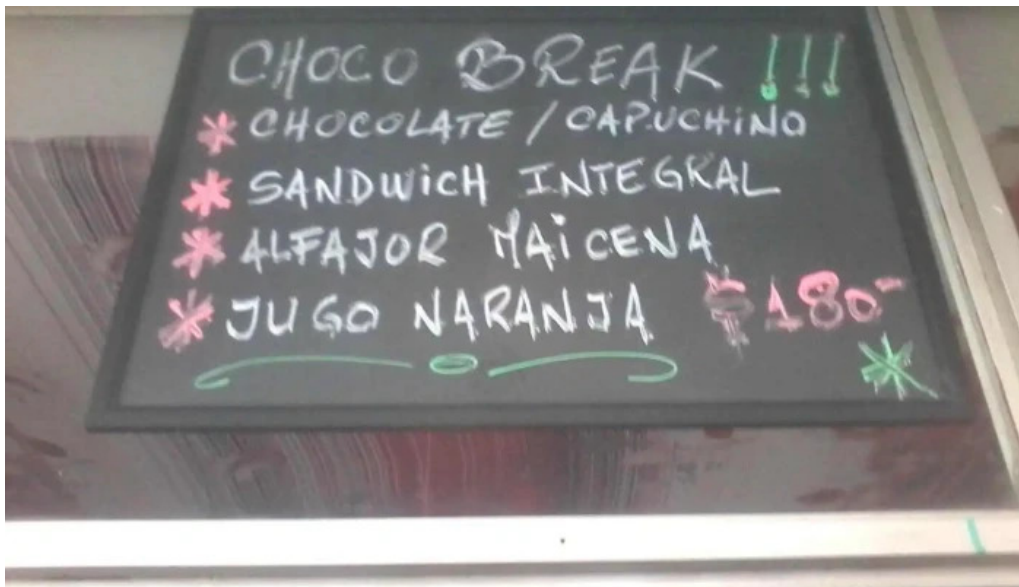 CHOCO BREAK !!!
* CHOCOLATE / CAPUCHINO
* SANDWICH INTEGRAL
* ALFAJOR MAICENA
* JUGO NARANJA $ 180-